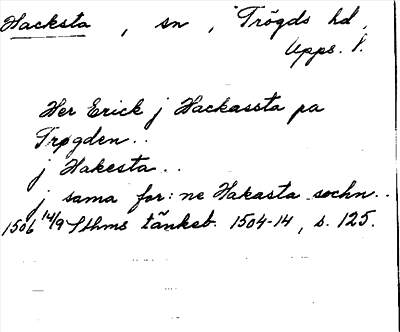 Hacksta, sn, Trögds hd,
Upps. l.
Her Erick j Hackassta pa
Trøgden..
j Hakesta..
j sama for:ne Hakasta sochn..
1506 14/9 Sthms tänkeb. 1504-14, s. 125.